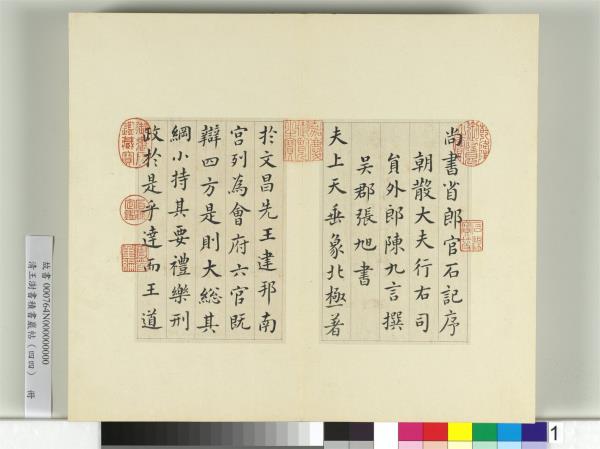 尚書省郎官石記序
朝散大夫行右司
員外郎陳九言撰
吳郡張旭書
夫上天垂象北極著
於文昌先王建邦南
宮列為會府六官既
辯四方是則大總其
綱小持其要禮樂刑
政於是乎達而王道
故書 000764N000000000
清王澍書積書巖帖(四四) 冊
1